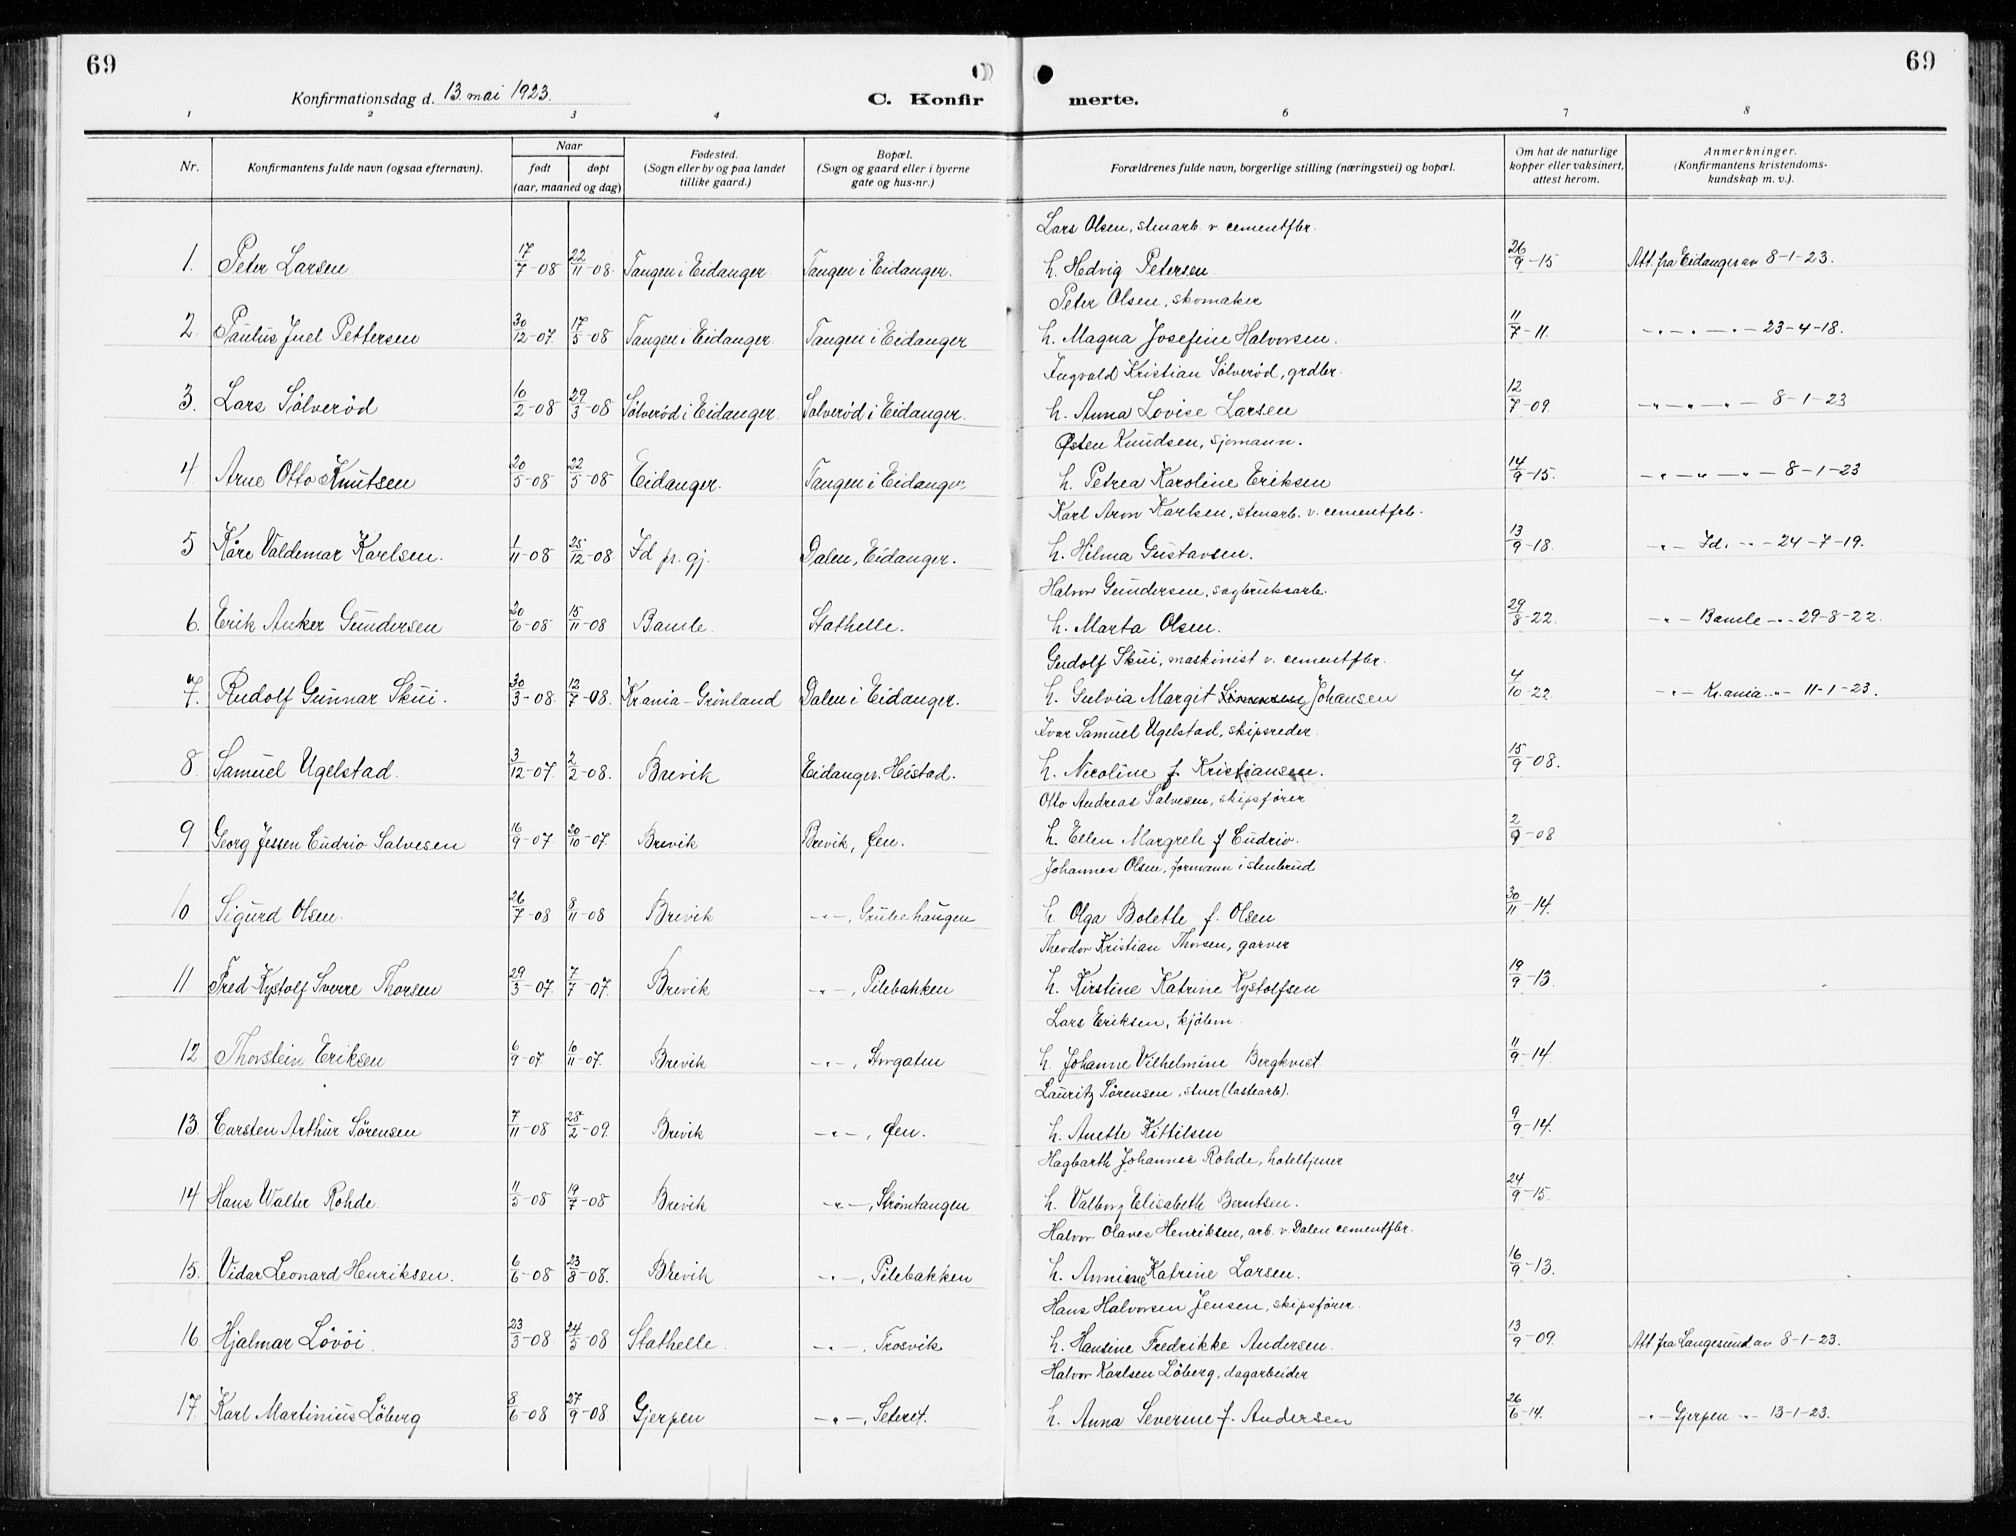 69
69
Konfirmationsdag d. 13. mai 1923.
C. Konfir
merte.
1 2 3 4 6 7 8
Nr.
Konfirmantens fulde navn (ogsaa efternavn).
Naar
født døpt
(aar, maaned og dag)
Fødested.
(Sogn eller by og paa landet
tillike gaard.)
Bopæl.
(Sogn og gaard eller i byerne
gate og hus-nr.)
Forældrenes fulde navn, borgerlige stilling (næringsvei) og bopæl.
Om hat de naturlige
kopper eller vaksinert,
attest herom.
Anmerkninger.
(Konfirmantens kristendoms-
kundskap m. v.).
Lars Olsen, stenarb. v. cementfbr.
1. Peter Larsen 17/7-08 22/11-08. Tangen i Eidanger. Tangen i Eidanger. h. Hedvig Petersen 26/9-15 Att. fra Eidanger av 8-1-23.
Peter Olsen, skomaker
2. Paulus Juel Pettersen 30/12-07. 17/5-08 Tangen i Eidanger. Tangen i Eidanger h. Magna Josefine Halvorsen. 11/7-11. -"-"-"- 23-4-18.
Ingvald Kristian Sølverød, grdbr.
3. Lars Sølverød 10/2-08 29/3-08 Sølverød i Eidanger. Sølverød i Eidanger. h. Anna Lovise Larsen 12/7-09. -"-"-"- 8-1-23
Østen Knudsen, sjømann.
4. Arne Otto Knutsen 20/5-08 22/5-08 Eidanger. Tangen i Eidanger h. Petrea Karoline Eriksen 14/9-15. -"-"-"- 8-1-23
Karl Aron Karlsen, stenarb. v. cementfrb.
5 Kåre Valdemar Karlsen. 1/11-08 25/12-08 Id pr. gj. Dalen, Eidanger. h. Hilma Gustavsen. 13/9-18. -"- Id. -"- 24-7-19.
Halvor Gundersen, sagbruksarb.
6. Erik Anker Gundersen 20/6-08 15/11-08 Bamle. Stathelle. h. Marta Olsen. 29/8-22. -"- Bamle -"- 29-8-22.
Gudolf Skui, maskinist v. cementfbr.
7. Rudolf Gunnar Skui. 30/3-08. 12/7-08. Krania-Grønland Dalen i Eidanger. h. Sulvia Margit Johansen 4/10-22 -"- Krania -"- 11-1-23.
Ivar Samuel Ugelstad, skipsreder.
8. Samuel Ugelstad. 3/12-07. 2/2-08. Brevik Eidanger. Heistad. h. Nicoline f. Kristiansen. 15/9-08.
Otto Andreas Salvesen, skipsfører
9 Georg Jessen Cudrio Salvesen 16/9-07. 20/10-07. Brevik Brevik, Øen. h. Ellen Margreth f Cudrio. 2/9-08
Johannes Olsen, formann i stenbrud
10 Sigurd Olsen. 26/7-08 8/11-08 Brevik -"-, Grubehaugen h. Olga Bolette f. Olsen 30/11-14.
Theodor Kristian Thorsen, garver
11 Fred Kystolf Sverre Thorsen 29/3-07. 7/7-07. Brevik -"-, Pilebakken h. Kirstine Katrine Kystolfsen 19/9-13.
Lars Eriksen, kjøbm.
12. Thorstein Eriksen 6/9-07 10/11-07. Brevik -"-, Storgaten h. Johanne Vilhelmine Bergkvist 11/9-14.
Lauritz Sørensen, stuer (lastearb).
13. Carsten Arthur Sørensen 7/11-08 28/2-09. Brevik -"-, Øen. h. Anette Kittilsen 9/9-14.
Hagbarth Johannes Rohde, hoteltjener
14 Hans Walter Rohde. 11/5-08 19/7-08 Brevik -"-, Strømtangen h. Valborg Elisabeth Berntsen. 24/9-15.
Halvor Olaves Henriksen, arb. v. Dalen cementfbr.
15. Vidar Leonard Henriksen. 6/6-08 23/8-08. Brevik -"-, Pilebakken h. Annine Katrine Larsen. 16/9-13.
Hans Halvorsen Jensen, skipsfører.
16. Hjalmar Løvøi. 23/3-08 24/5-08 Stathelle. -"-, Trosvik h. Hansine Fredrikke Andersen. 13/9-09. Att. fra Langesund av 8-1-23.
Halvor Karlsen Löberg, dagarbeider
17. Karl Martinius Löberg 8/6-08 27/9-08 Gjerpen -"-, Seteret. h. Anna Severine f. Andersen 26/6-14. -"- Gjerpen -"- 13-1-23.